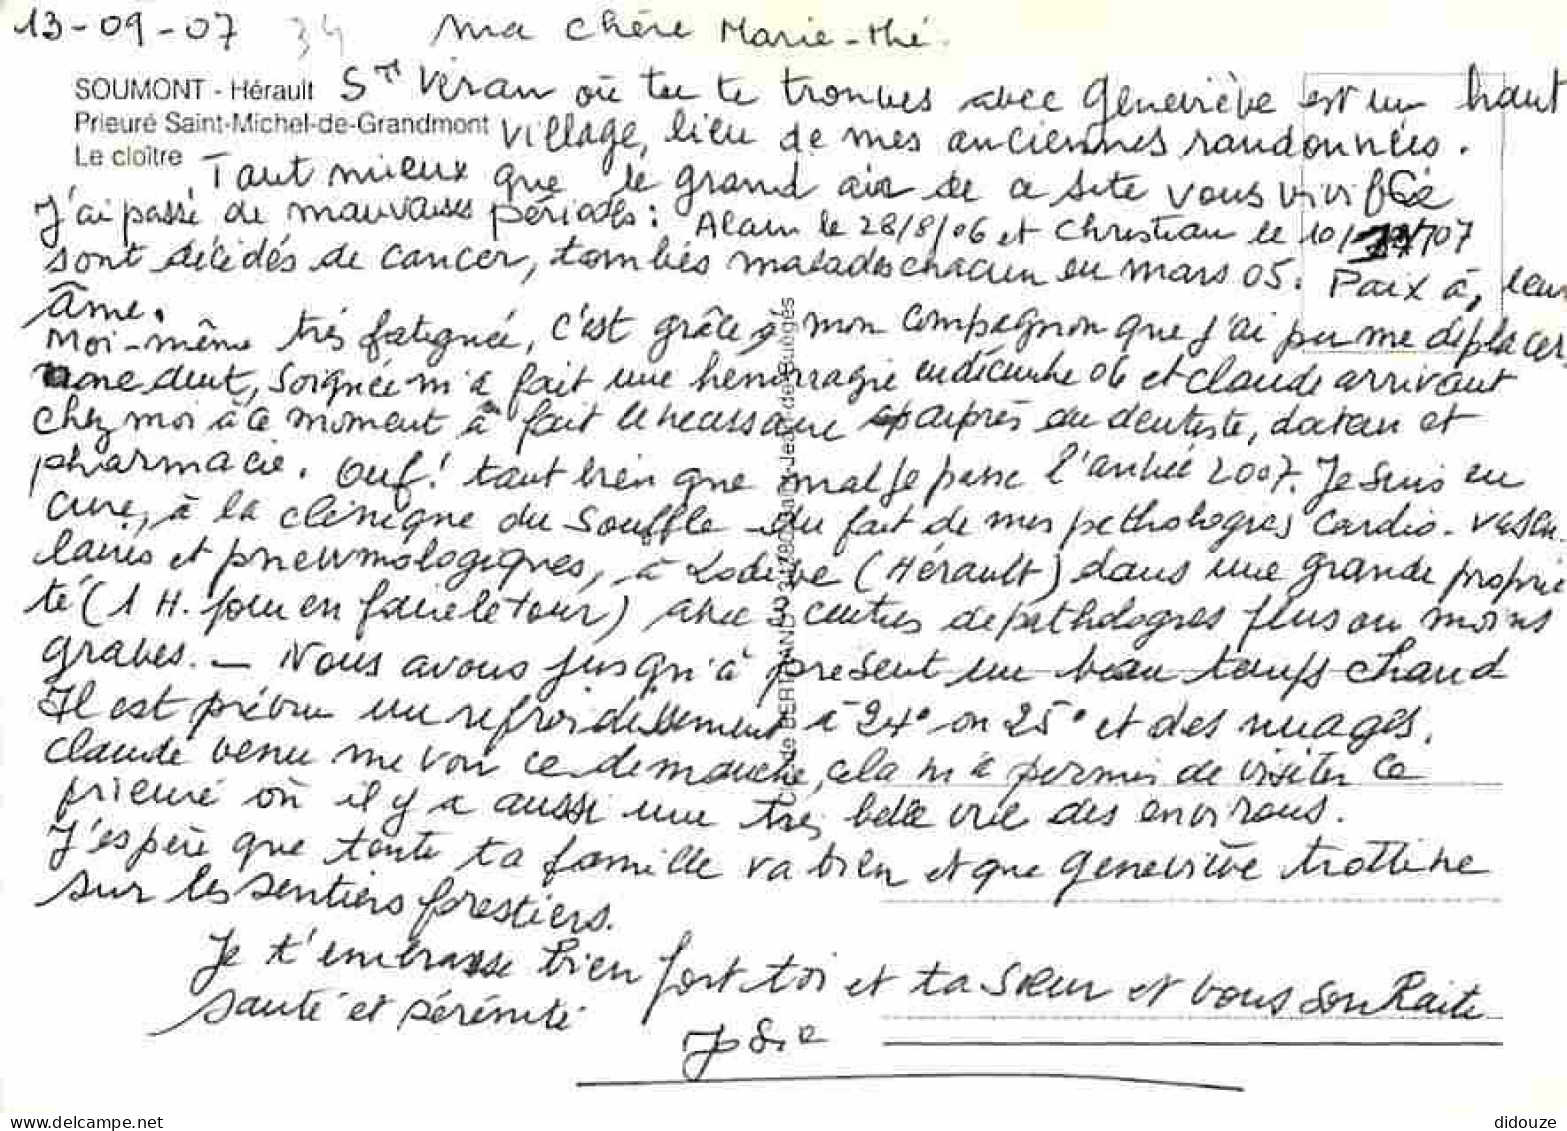 13-09-07 34 Ma chère Marie-Thé.
SOUMONT - Hérault
Prieuré Saint-Michel-de-Grandmont
Le cloître
St Véran où tu te trouves avec Geneviève est un haut
village, lieu de mes anciennes randonnées.
Tant mieux que le grand air de ce site vous vivifie
J'ai passé de mauvaises périodes : Alain le 28/8/06 et Christian le 10/ /07
sont décédés de cancer, tombés malades chacun en mars 05. Paix à, leur
âme.
Moi-même très fatiguée, c'est grâce à mon compagnon que j'ai pu me déplacer,
une dent, soignée m'a fait une hémorragie en décembre 06 et Claude arrivant
chez moi à ce moment a fait le nécessaire auprès du dentiste, et
pharmacie. Ouf! tant bien que mal je passe l'année 2007. Je suis en
cure, à la clinique du Souffle du fait de mes pathologies cardio-vascu-
laires et pneumologiques, à Lodève (Hérault) dans une grande proprié
té (1 H. pour en faire le tour) avec 3 centres de pathologies plus ou moins
graves. — Nous avons jusqu'à présent un beau temps chaud
Il est prévu un refroidissement à 24° ou 25° et des nuages.
Claude venu me voir ce dimanche, cela m'a permis de visiter ce
prieuré où il y a aussi une très belle vue des environs.
J'espère que toute ta famille va bien et que Geneviève trottine
sur les sentiers forestiers.
Je t'embrasse bien fort toi et ta soeur et vous souhaite
santé et sérénité
delcampe.net
didouze